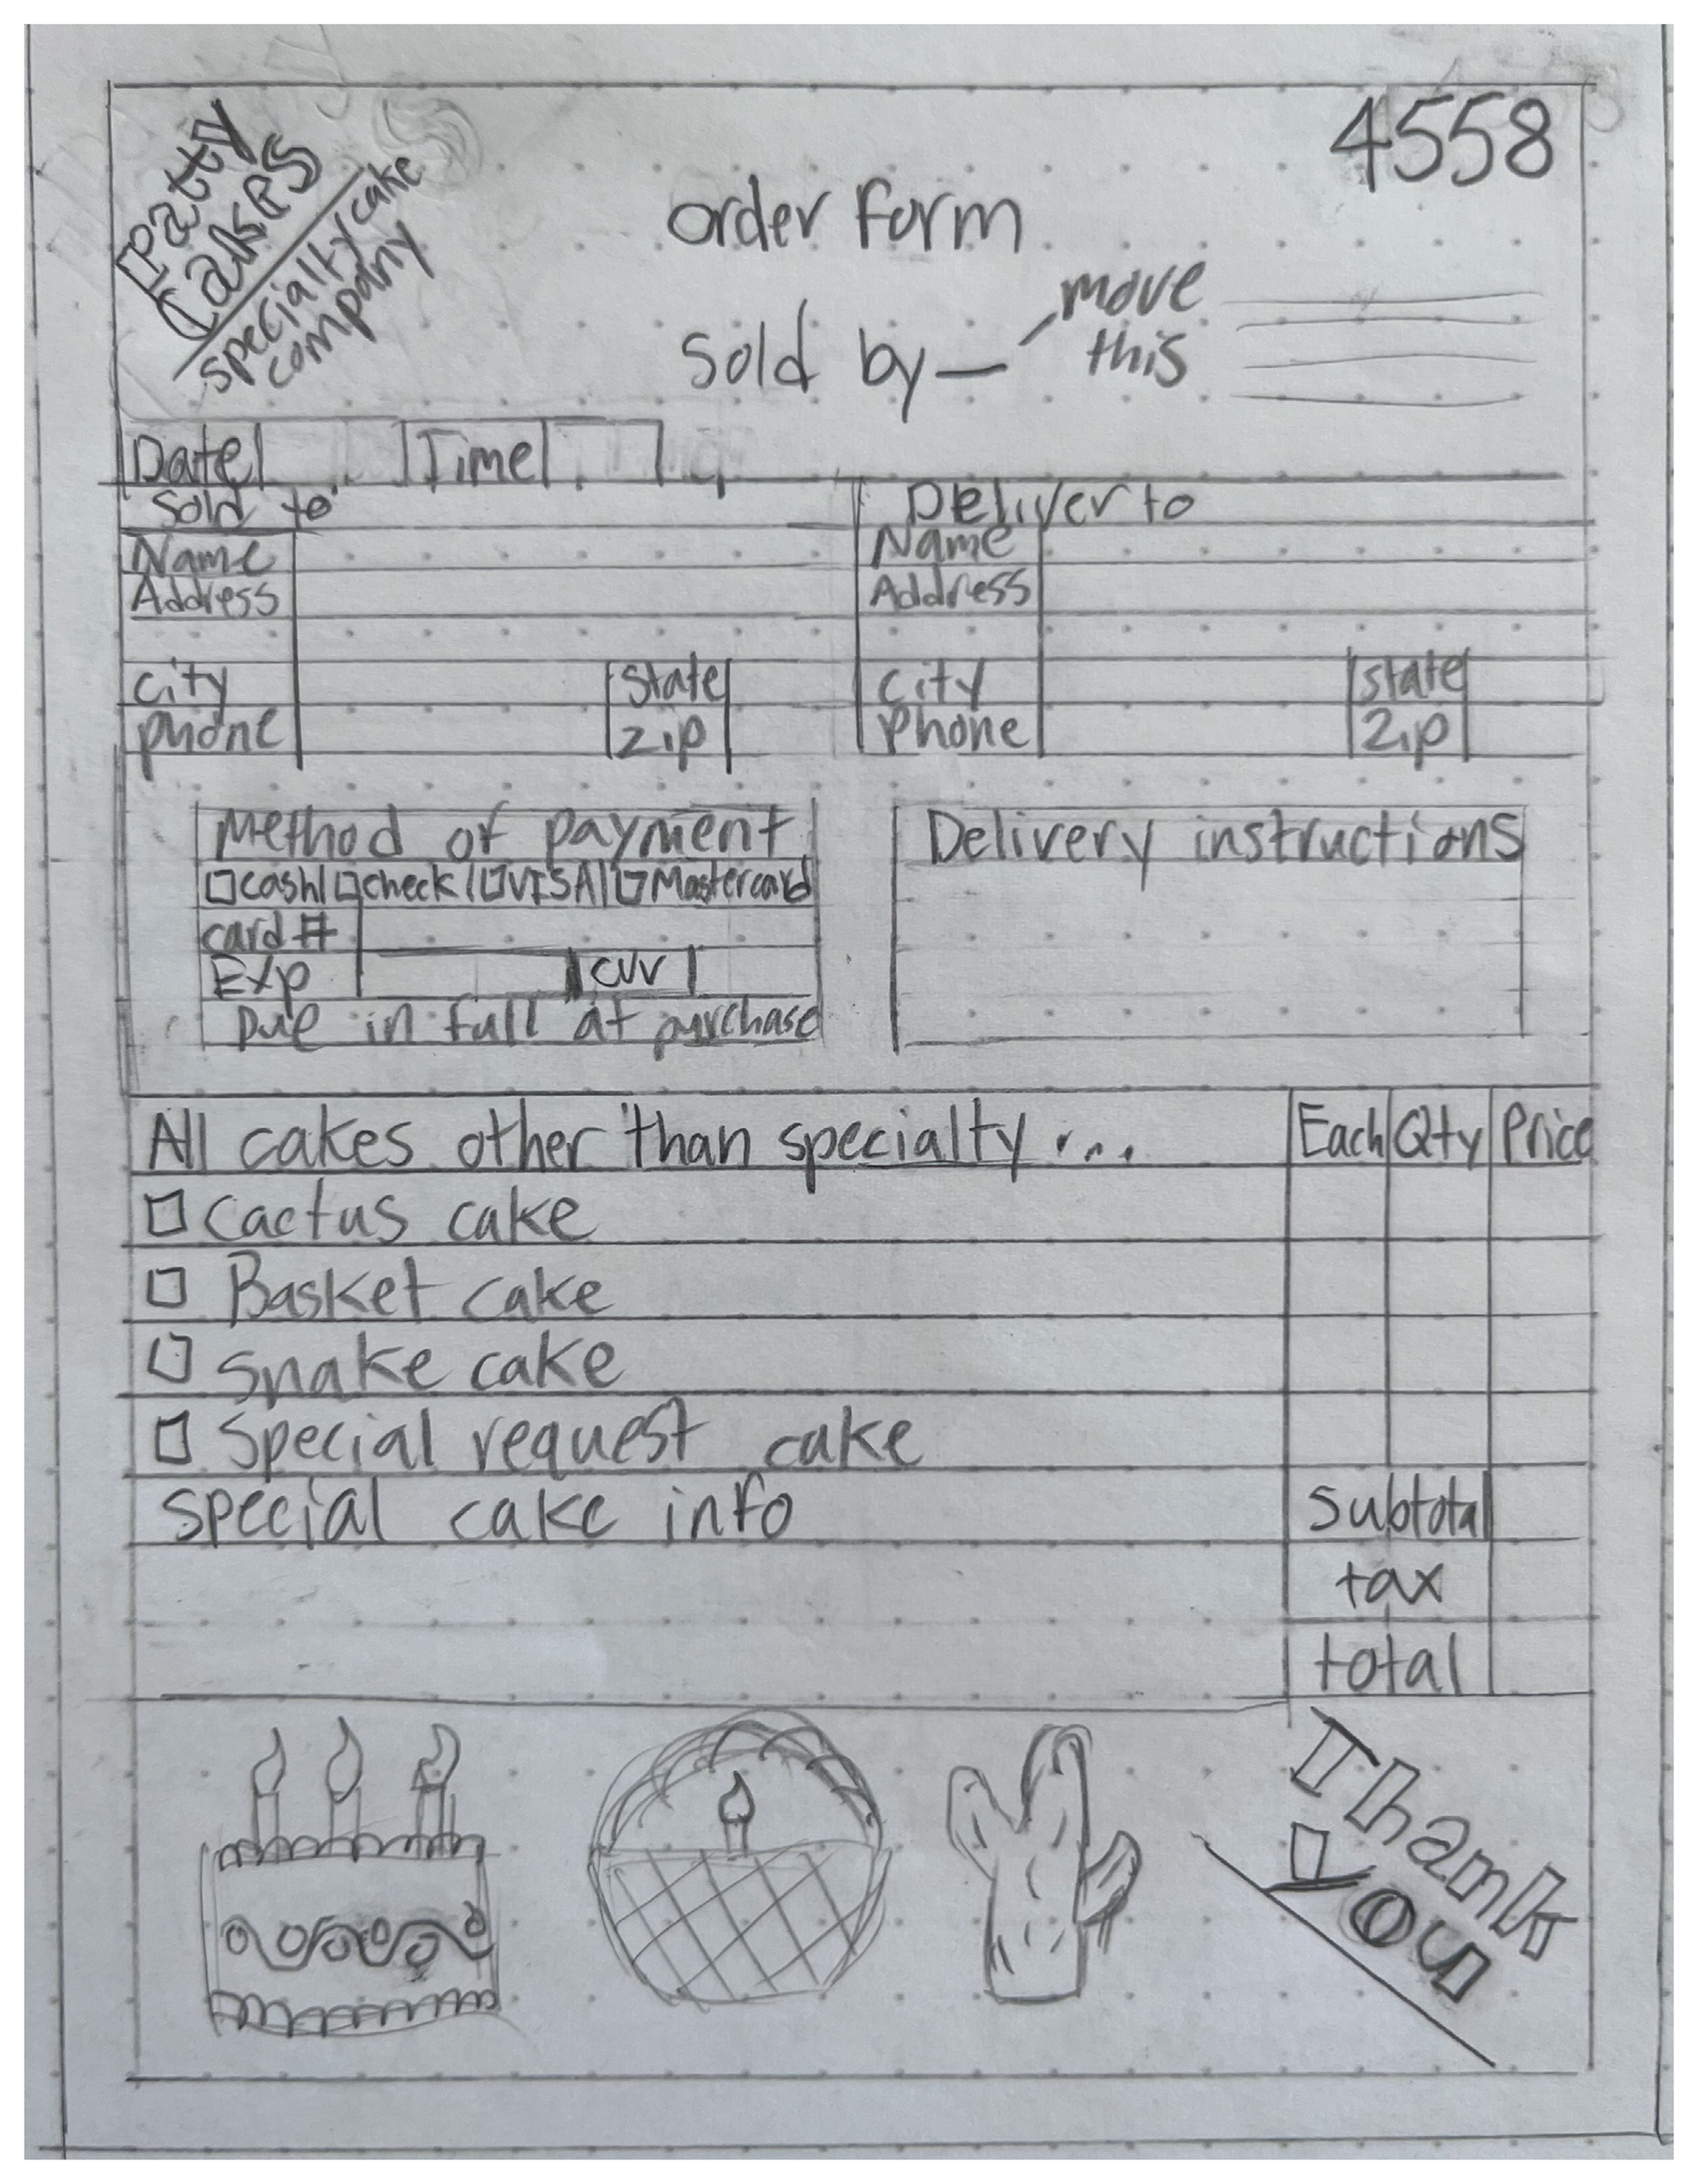 Patty
Cakes
specialty cake
company
4558
order form
sold by — move
this
Date Time
Sold to Deliver to
Name Name
Address Address
city State city state
phone zip Phone Zip
Method of payment Delivery instructions
cash check VISA Mastercard
card #
Exp CVV
Due in full at purchase
All cakes other than specialty ... Each Qty Price
Cactus cake
Basket cake
snake cake
Special request cake
special cake info subtotal
tax
total
Thank
you